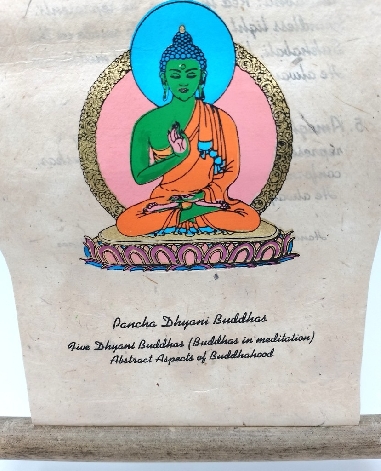 Pancha Dhyani Buddhas
Five Dhyani Buddhas (Buddhas in meditation)
Abstract Aspects of Buddhahood